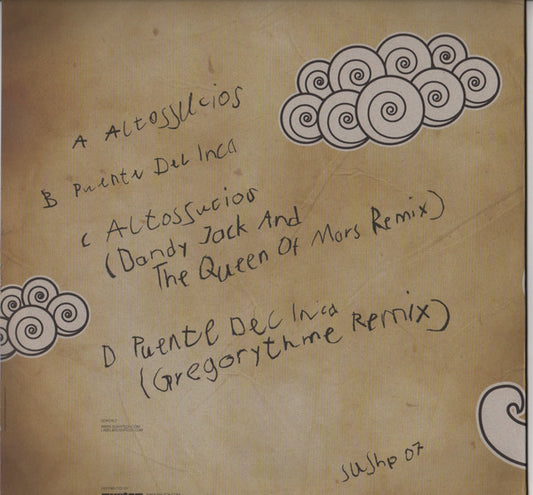 A Altossucios
B Puente Del Inca
C Altossucios
(Dandy Jack And
The Queen Of Mars Remix)
D Puente Del Inca
(Gregorythme Remix)
CONTACT
sushp 07